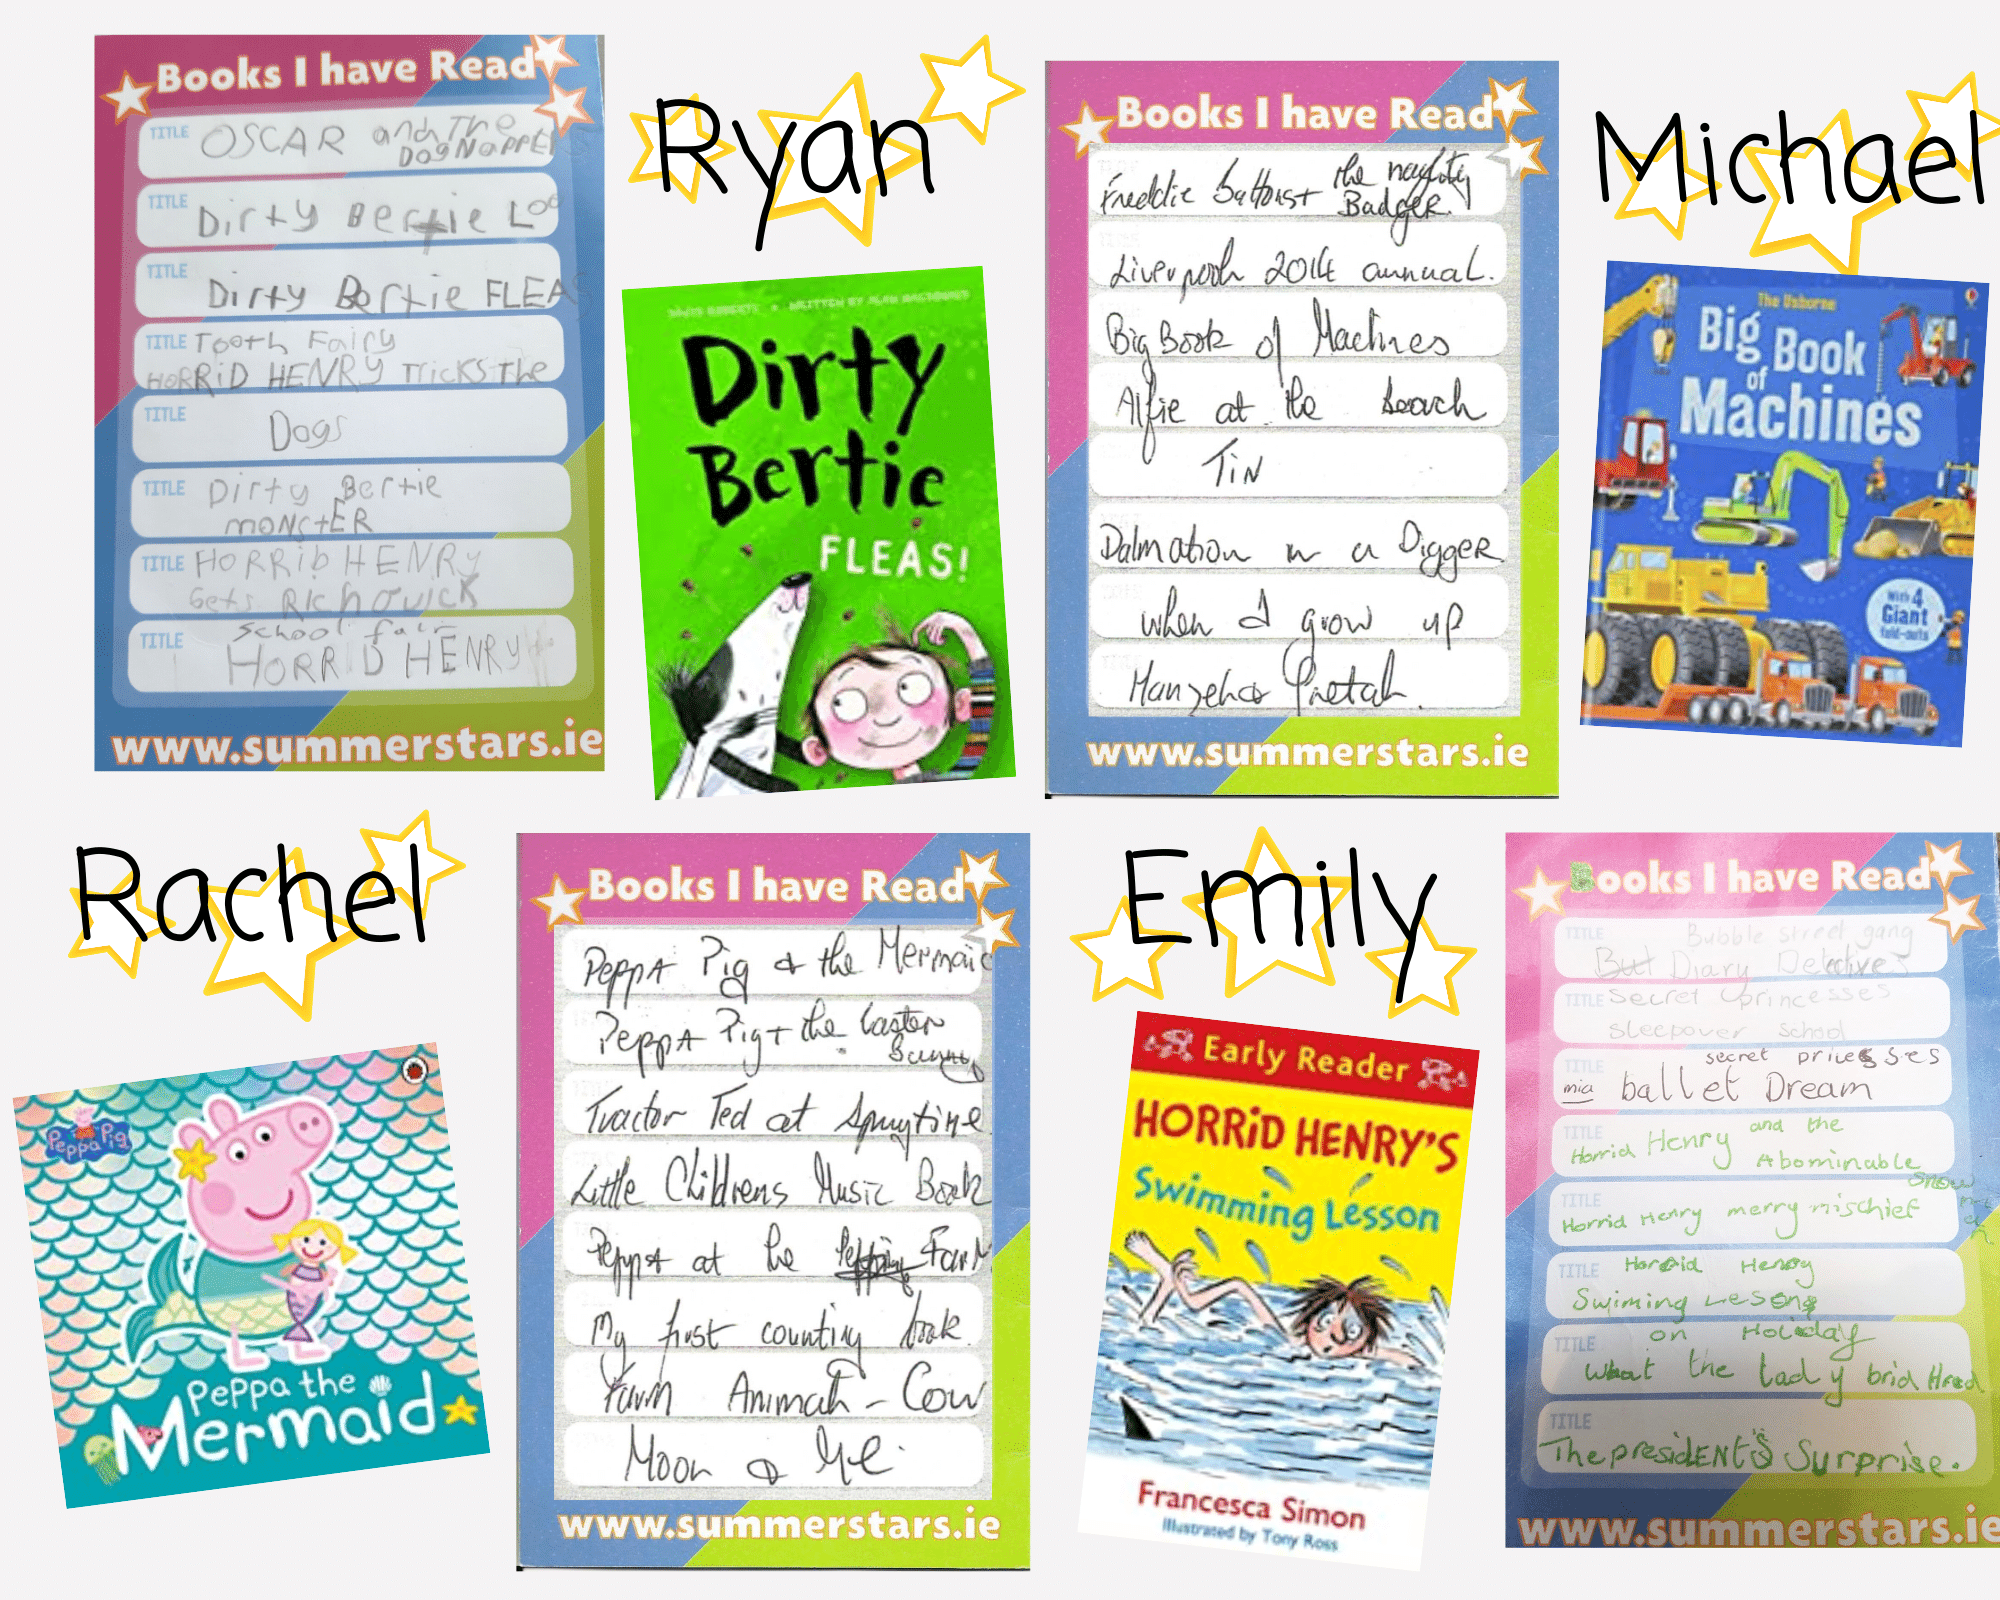 Books I have Read
TITLE OSCAR and The
DOGNAPPERS
TITLE Dirty Bertie Loo
TITLE Dirty Bertie FLEAS
TITLE Tooth Fairy
HORRiD HENRY TricKS The
TITLE Dogs
TITLE Dirty Bertie
monstER
TITLE HORRiD HENRY
Gets RicH QUICK
School fair
TITLE HORRiD HENRY
www.summerstars.ie
Ryan
Dirty
Bertie
FLEAS!
Books I have Read
the naughty
Freddie Badger
Liverpooh 2014 annual.
Big Book of Machines
Alfie at the beach
TiN
Dalmation in a Digger
when I grow up
www.summerstars.ie
Michael
The Usborne
Big Book
of
Machines
With 4
Giant
fold-outs
Rachel
Peppa Pig
Peppa the
Mermaid
Books I have Read
PeppA Pig & the Mermaid
PeppA Pig + the Easter
Bunny
Tractor Ted at Springtime
Little Childrens Music Book
PeppA at the Farm
My first counting book.
Farm Animals - Cow
Moon & Me.
www.summerstars.ie
Emily
Early Reader
HORRiD HENRY'S
Swimming Lesson
Francesca Simon
Illustrated by Tony Ross
Books I have Read
TITLE Bubble street gang
But Diary Detectives
TITLE Secret princesses
sleepover school
TITLE secret pricesses
mia ballet Dream
TITLE and the
Horrid Henry Abominable
snow
man
TITLE
Horrid Henry merry mischief
TITLE Horrid Henry
Swiming Lesons
on Holiday
TITLE What the lady brid Hred
TITLE
The presidENt's Surprise.
www.summerstars.ie